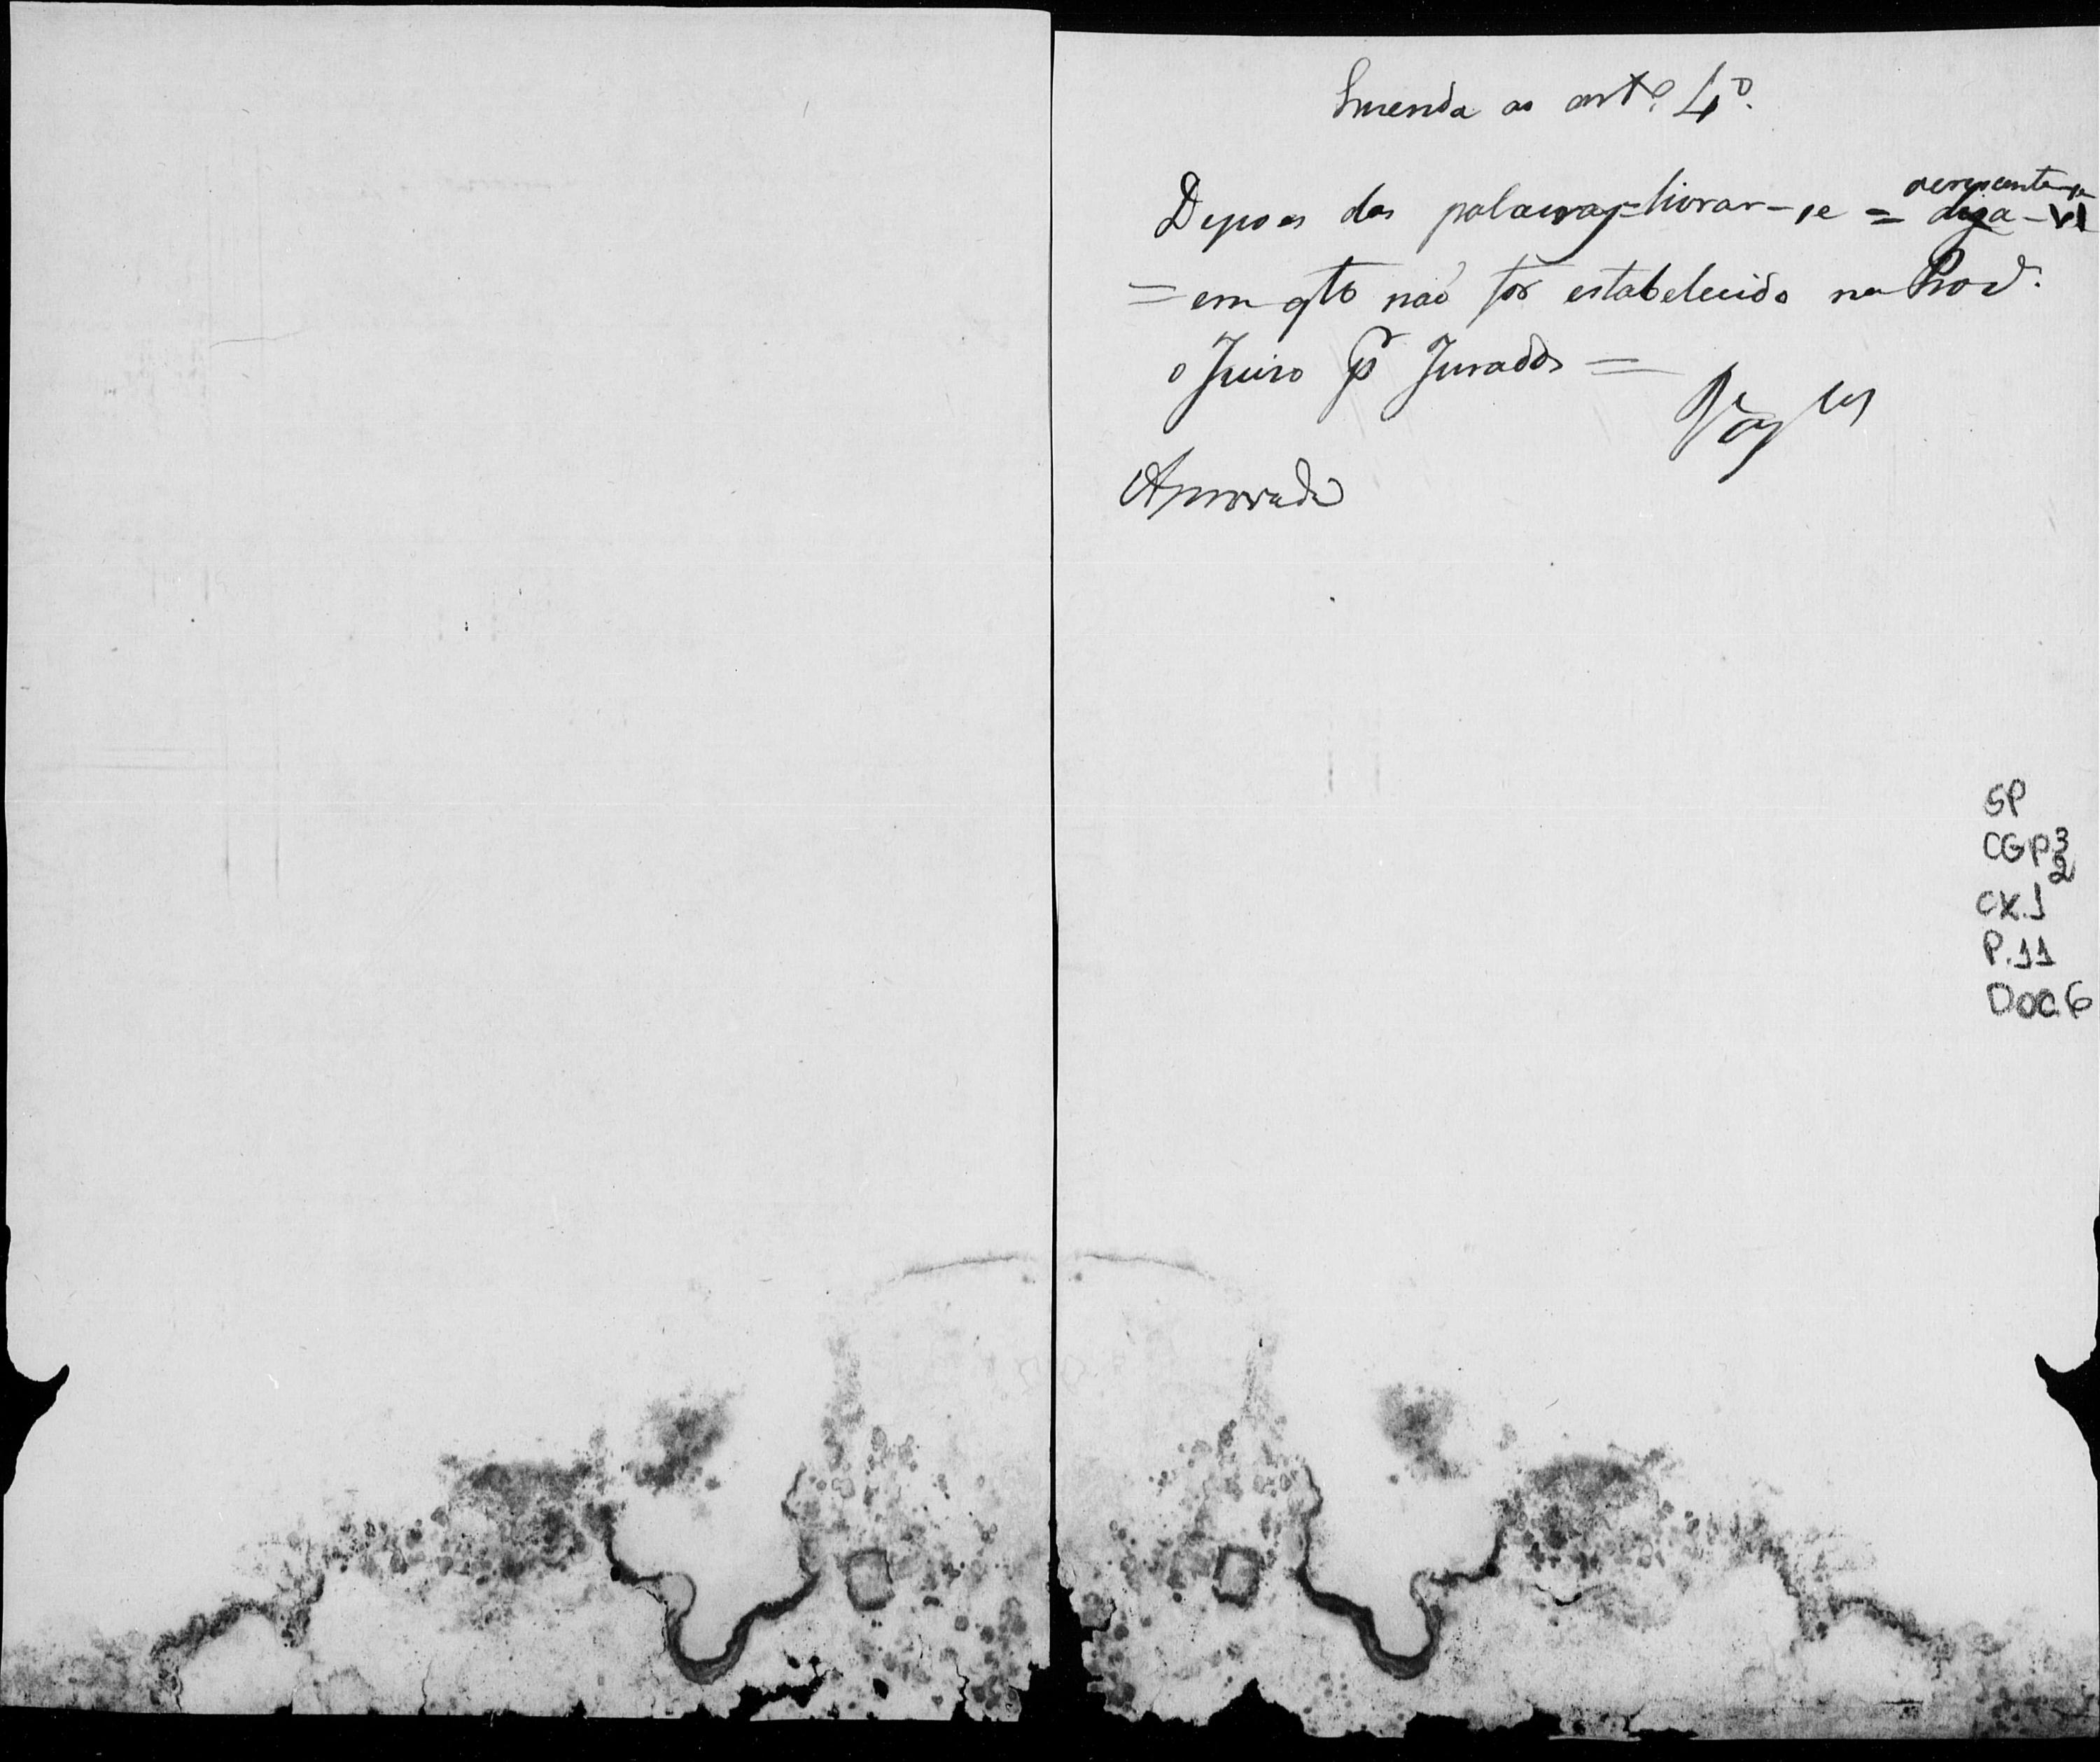 Emenda ao art.º 4º.
acrescente-se
Depois das palavras = livrar-se = diga-se
= em qto não for estabelecido na Prov.
o Juizo pr Jurados =
Approvada
SP
CGP3
2
CX.1
P.11
DOC.6